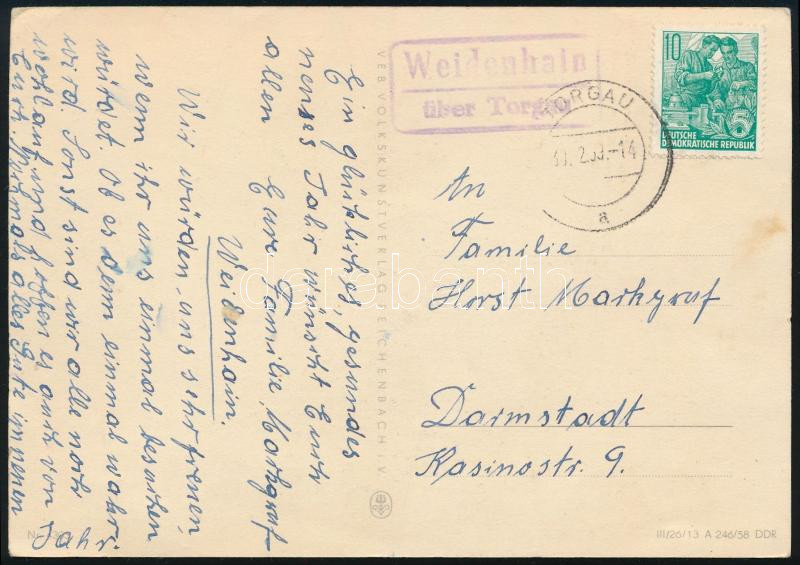 Ein glückliches, gesundes
neues Jahr wünscht Euch
allen Eure Familie Markgraf
Weidenhain.
Wir würden uns sehr freuen,
wenn ihr uns einmal besuchen
würdet. Ob es denn einmal wahr
wird. Sonst sind wir alle noch
wohlauf und hoffen es auch von
Euch. Nochmals alles Gute im neuen
Jahr.
VEB VOLKSKUNSTVERLAG REICHENBACH V.
Weidenhain
über Torgau
TORGAU
-14
a
10
DEUTSCHE
DEMOKRATISCHE REPUBLIK
5
An
Familie
Horst Markgraf
Darmstadt
Kasinostr. 9.
III/26/13 A 246/58 DDR
darabanth